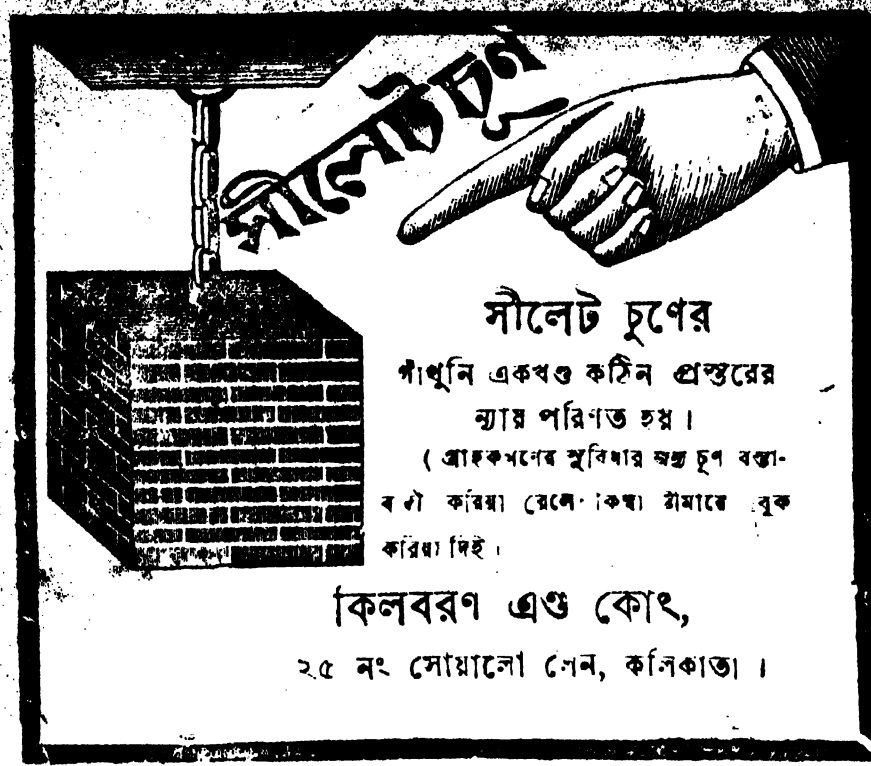 সীলেট চূণ
সীলেট চুণের
গাঁথুনি একখণ্ড কঠিন প্রস্তরের
ন্যায় পরিণত হয়।
( গ্রাহকগণের সুবিধার জন্য চূণ বস্তা-
বন্দী করিয়া রেলে কিম্বা ষ্টীমারে বুক
করিয়া দিই।
কিলবরণ এণ্ড কোং,
২৫ নং সোয়ালো লেন, কলিকাতা।